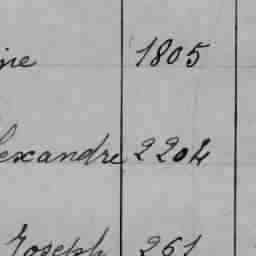 ine 1805
lexandre 2204
Joseph 261